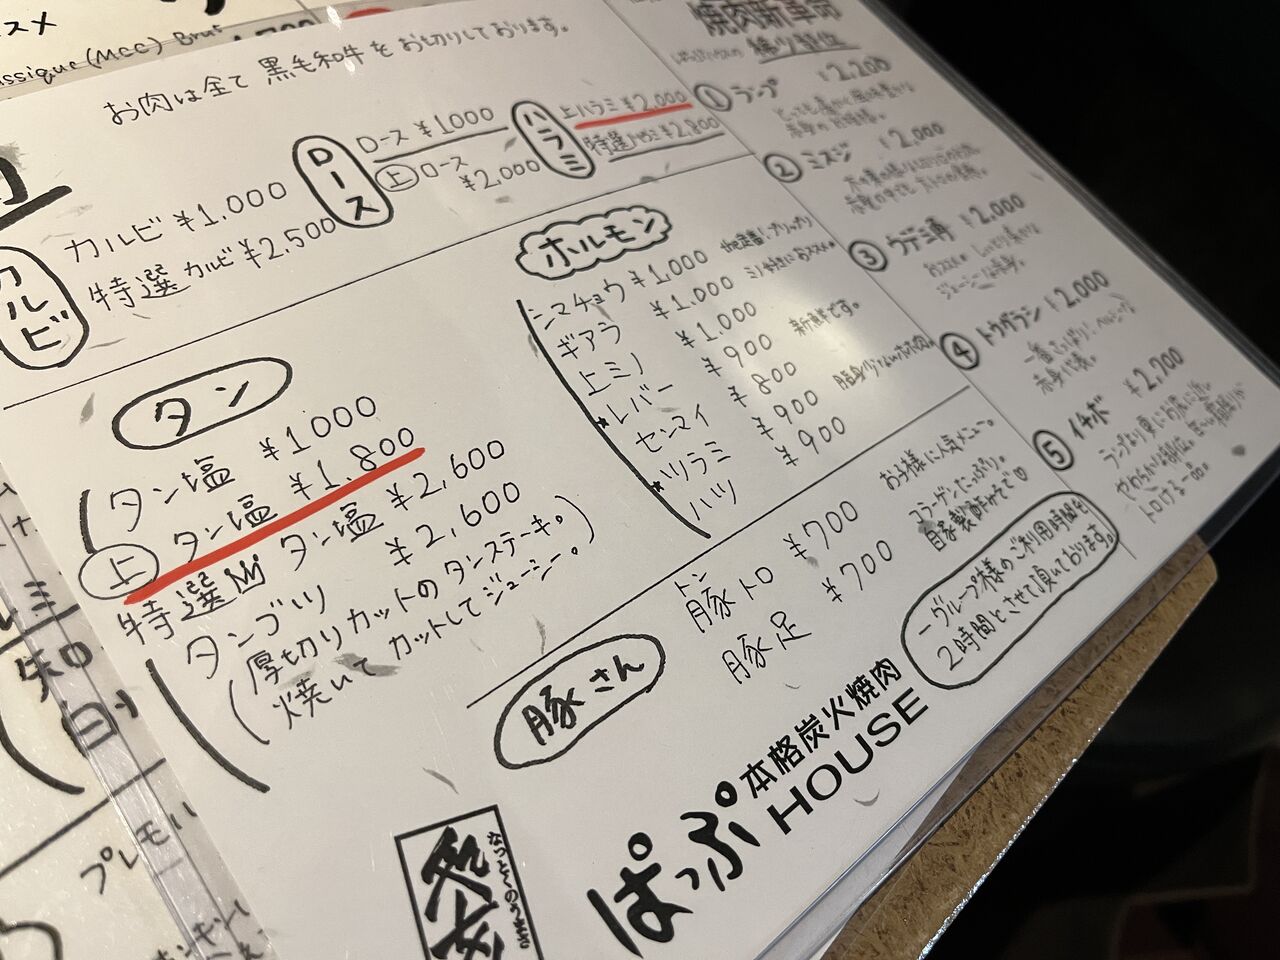 スメ
assique (MCC) Brut
お肉は全て黒毛和牛をお切りしております。
カルビ
カルビ ¥1,000
特選カルビ ¥2,500
ロース
ロース ¥1000
上ロース
¥2,000
ハラミ
上ハラミ ¥2,000
特選ハラミ ¥2,800
タン
タン塩 ¥1000
上 タン塩 ¥1,800
特選 タン塩 ¥2,600
タンゴツ ¥2,600
(厚切りカットのタンステーキ。
焼いてカットしてジューシー。)
ホルモン
シマチョウ ¥1,000
ギアラ ¥1,000
上ミノ ¥1,000
レバー ¥900 新鮮です。
センマイ ¥800
ツラミ ¥900
ハツ ¥900
豚さん
トン
豚トロ ¥700 お子様に人気メニュー。
豚足 ¥700 コラーゲンたっぷり。
自家製酢みそで♡
焼肉新革命
希少部位
① ランプ ¥2,200
② ミスジ ¥2,000
③ ウデミ専 ¥2,000
④ トウガラシ ¥2,000
一番さっぱり!ヘルシーな
赤身代表。
⑤ イチボ ¥2,700
ランプより更にお尻に近い
やわらかい部位。
トロける一品。
一グループ様のご利用時間を
2時間とさせて頂いております。
本格炭火焼肉
ぱっぷ HOUSE
プレモル